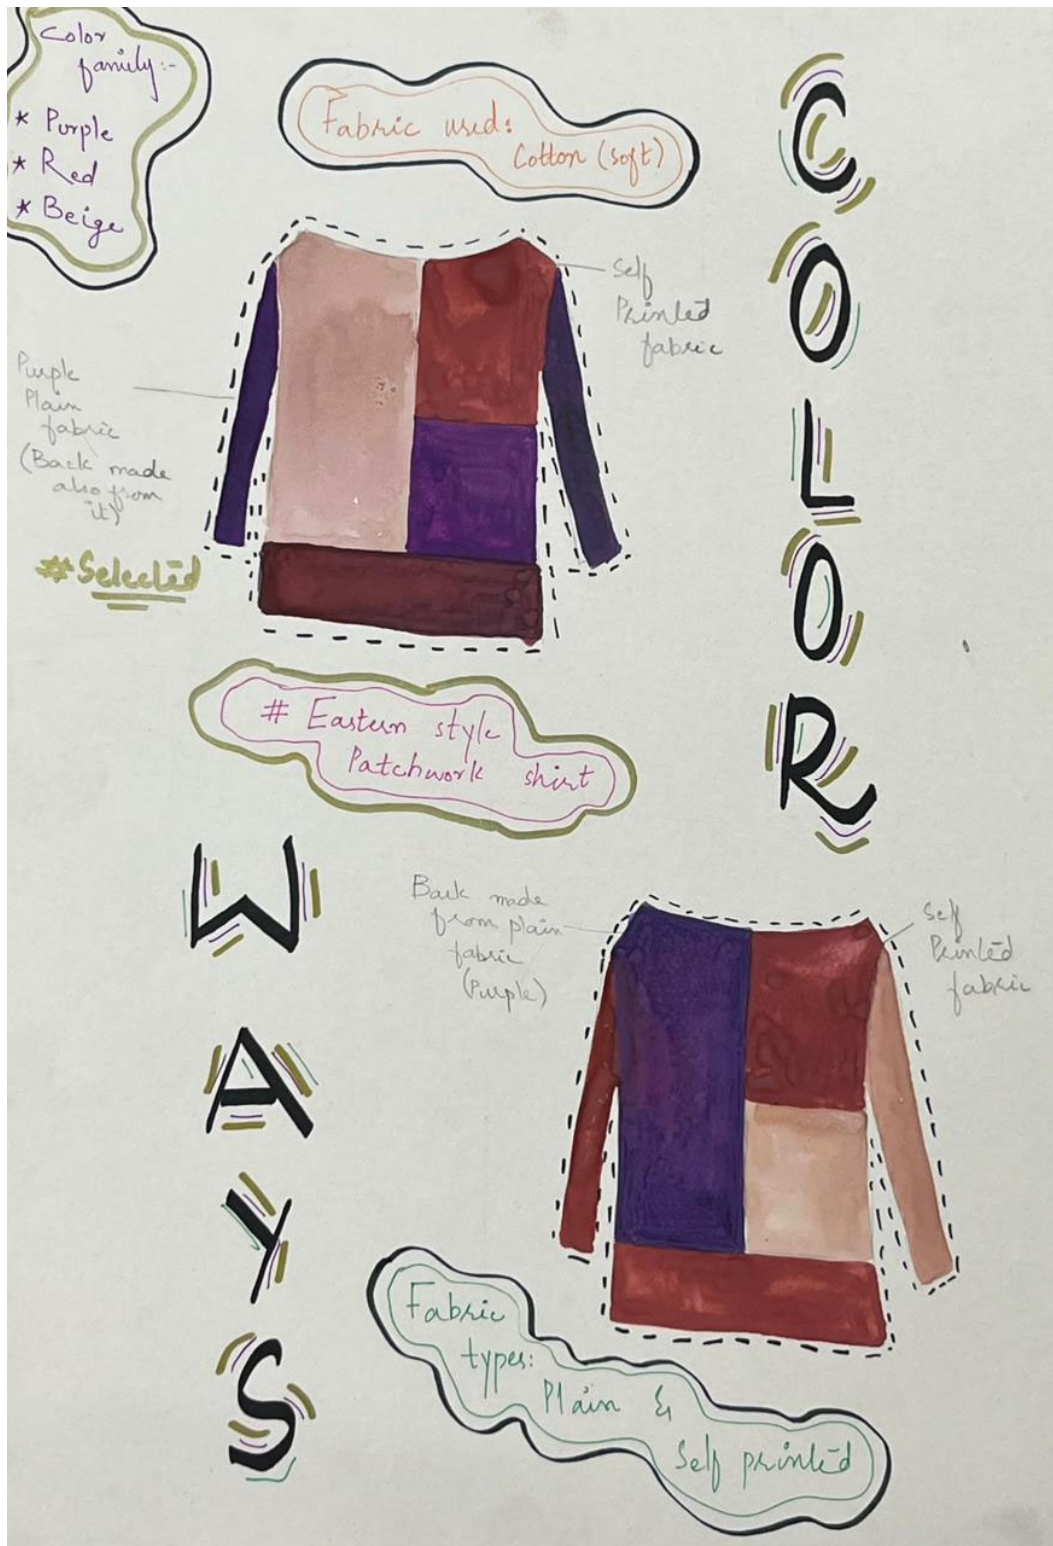 Color
family:-
* Purple
* Red
* Beige
Fabric used:
Cotton (soft)
COLOR
Self
Printed
fabric
Purple
Plain
fabric
(Back made
also from
it)
#Selected
# Eastern style
Patchwork shirt
WAYS
Back made
from plain
fabric
(Purple)
Self
Printed
fabric
Fabric
types:
Plain &
Self printed